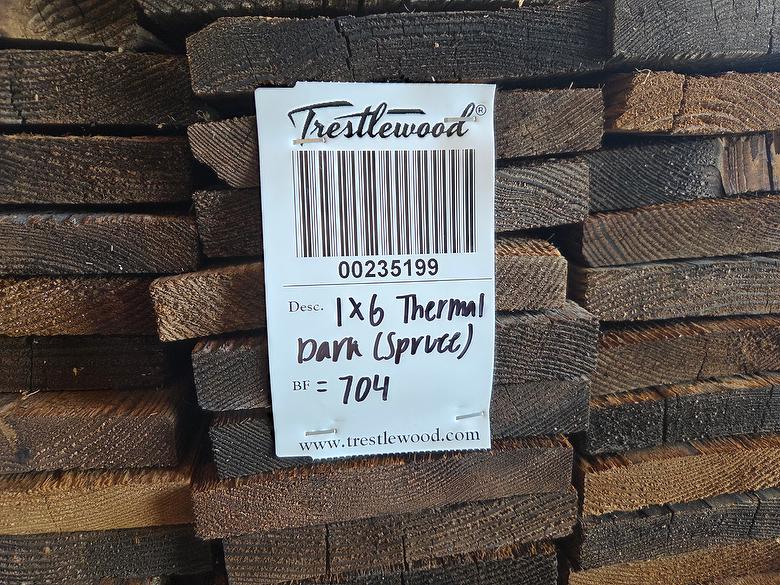 Trestlewood®
00235199
Desc. 1x6 Thermal
Dark (Spruce)
BF = 704
www.trestlewood.com